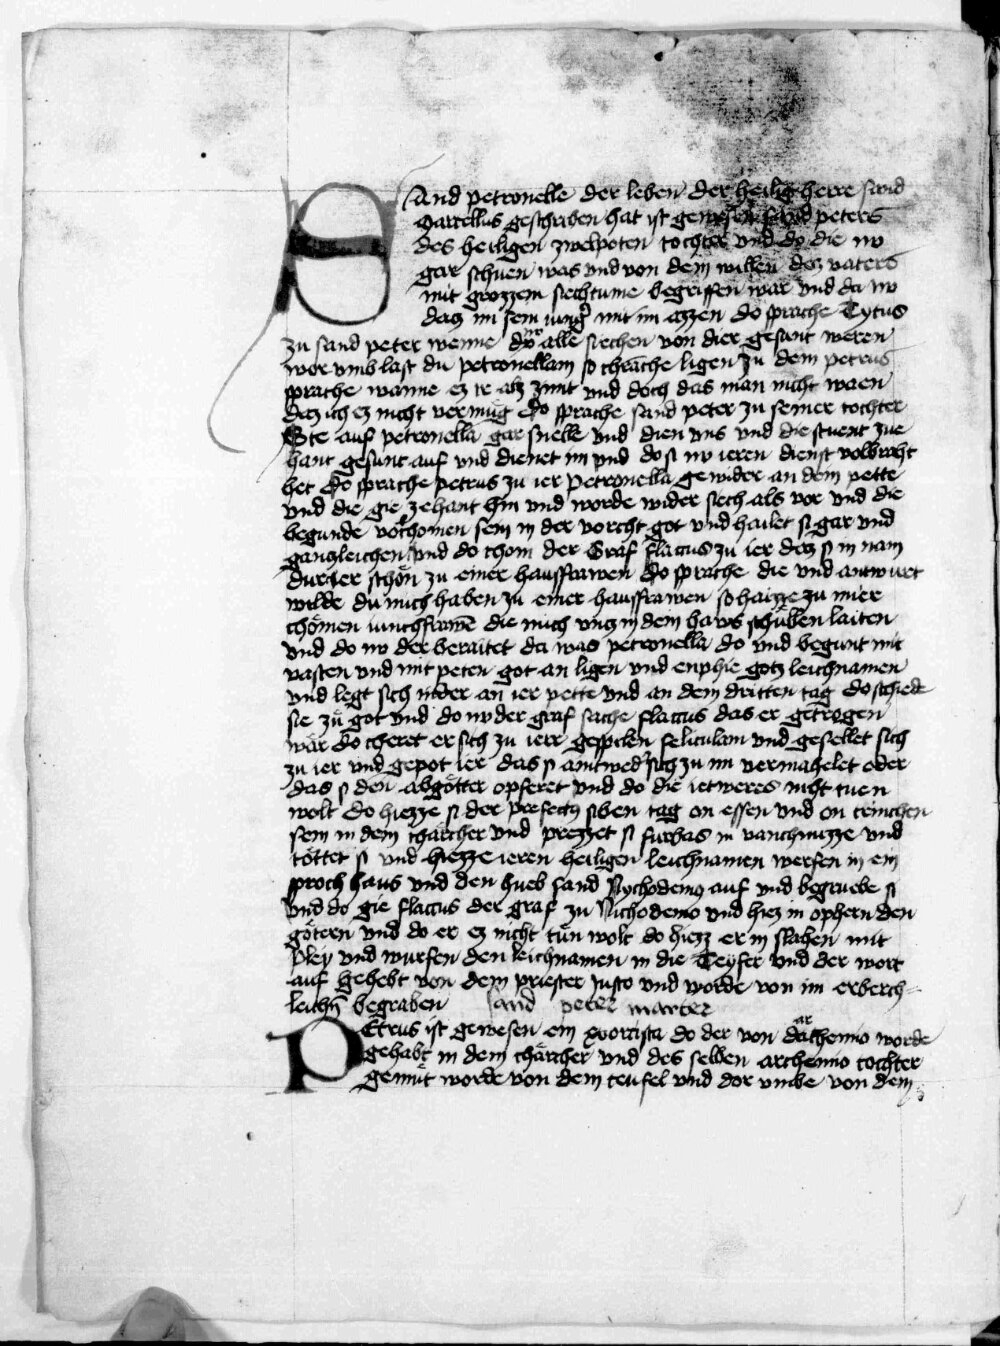 SAnd petronelle der leben der heilig herre sand
Marcellus geschriben hat ist gewesen sand peters
des heiligen zwelpoten tochter vnd do die nv
gar schuen was vnd von dem willen dez vaters
mit grozzem siechtume begriffen war vnd da nv
daz im sein iung mit im azzen do sprache Tytus
zu sand peter wenne dv nv alle siechen von dier gesunt weren
wor vmb last du petronellam so chrache ligen zu dem petrus
sprache wanne ez ir alz zimt vnd doch das man nicht waen
daz ich ez nicht vermug do sprache sand peter zu seiner tochter
Ste auf petronella gar snelle vnd dien vns vnd die stuent zue
hant gesunt auf vnd dienet im vnd do si nv ieren dienst volbracht
het do sprache petrus zu ier petronella ge wider an dem pette
vnd die gie zehant hin vnd worde wider siech als vor vnd die
begunde volchomen sein in der vorcht got vnd hailet si gar vnd
ganzleichen vnd do chom der Graf flaccus zu ier daz si in nam
durch er schön zu einer hausfrawen do sprache die vnd antwurt
wilde du mich haben zu einer hausfrawen so haizze zu mier
chömen iunchfrawē die mich vnz in dein haws schüllen laiten
vnd do nv der beraitet da was petronella do vnd begunt mit
vasten vnd mit peten got an ligen vnd enphie gotz leichnamen
vnd legt sich nider an ier pette vnd an dem dritten tag do schiede
sie zů got vnd do nv der graf sache flaccus das er getrogen
wär do cheret er sich zu ierr gespilen feliculam vnd gesellet sich
zu ier vnd gepot ier das si aintwed sich zu im vermahelet oder
das si den abgötter opferet vnd do die ietweres niht tuen
wolt do hiezze si der prefectus siben tag on essen vnd on trinchen
sein in dem chärcher vnd prezzet si furbas in vanchnuzze vnd
töttet si vnd hiezze ieren heiligen leichnamen werfen in ein
sproch haus vnd den hueb sand Nychodemus auf vnd begruebe si
vnd do gie flaccus der graf zu Nichodemo vnd hiez in ophern den
götern vnd do er ez nicht tün wolt do hiezz er in slahen mit
bley vnd wurfen den leichnamen in die Teyfer vnd der wort
auf gehebt von dem priester Justo vnd worde von im erberch-
leichn̄ begraben sand peter marter
PEtrus ist gewesen ein exorcista do der von darchemio worde
gehabt in dem chärcher vnd des selben archemio tochter
gemüt worde von dem teufel vnd dor vmbe von dem